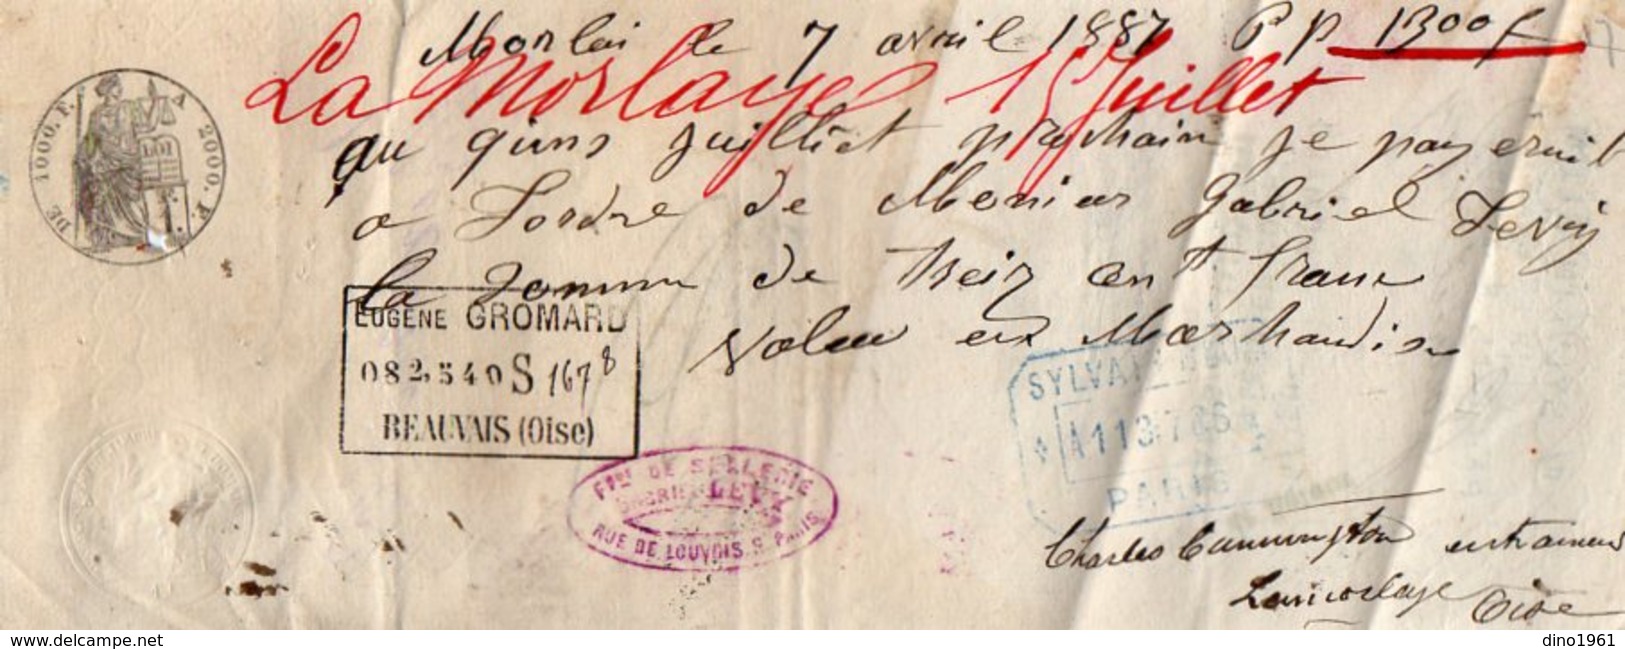 Morlai le 7 avril 1887 P p 1300 f
La Morlaye 15 Juillet
au quins juilliet prochain je payerait
a Lordre de Monieur Gabriel Levy
la Somme de treiz cent franc
Valeur en Marchandise
DE 1000. F. A 2000. F.
EUGÈNE GROMARD
082,540 S 1678
BEAUVAIS (Oise)
SYLVAI
A113.786
PARIS
DE SELLERIE
GABRIEL LEVY
RUE DE LOUVOIS 2 PARIS
Charles Cunnington entraineur
Lamorlaye Oise
www.delcampe.net
dino1961